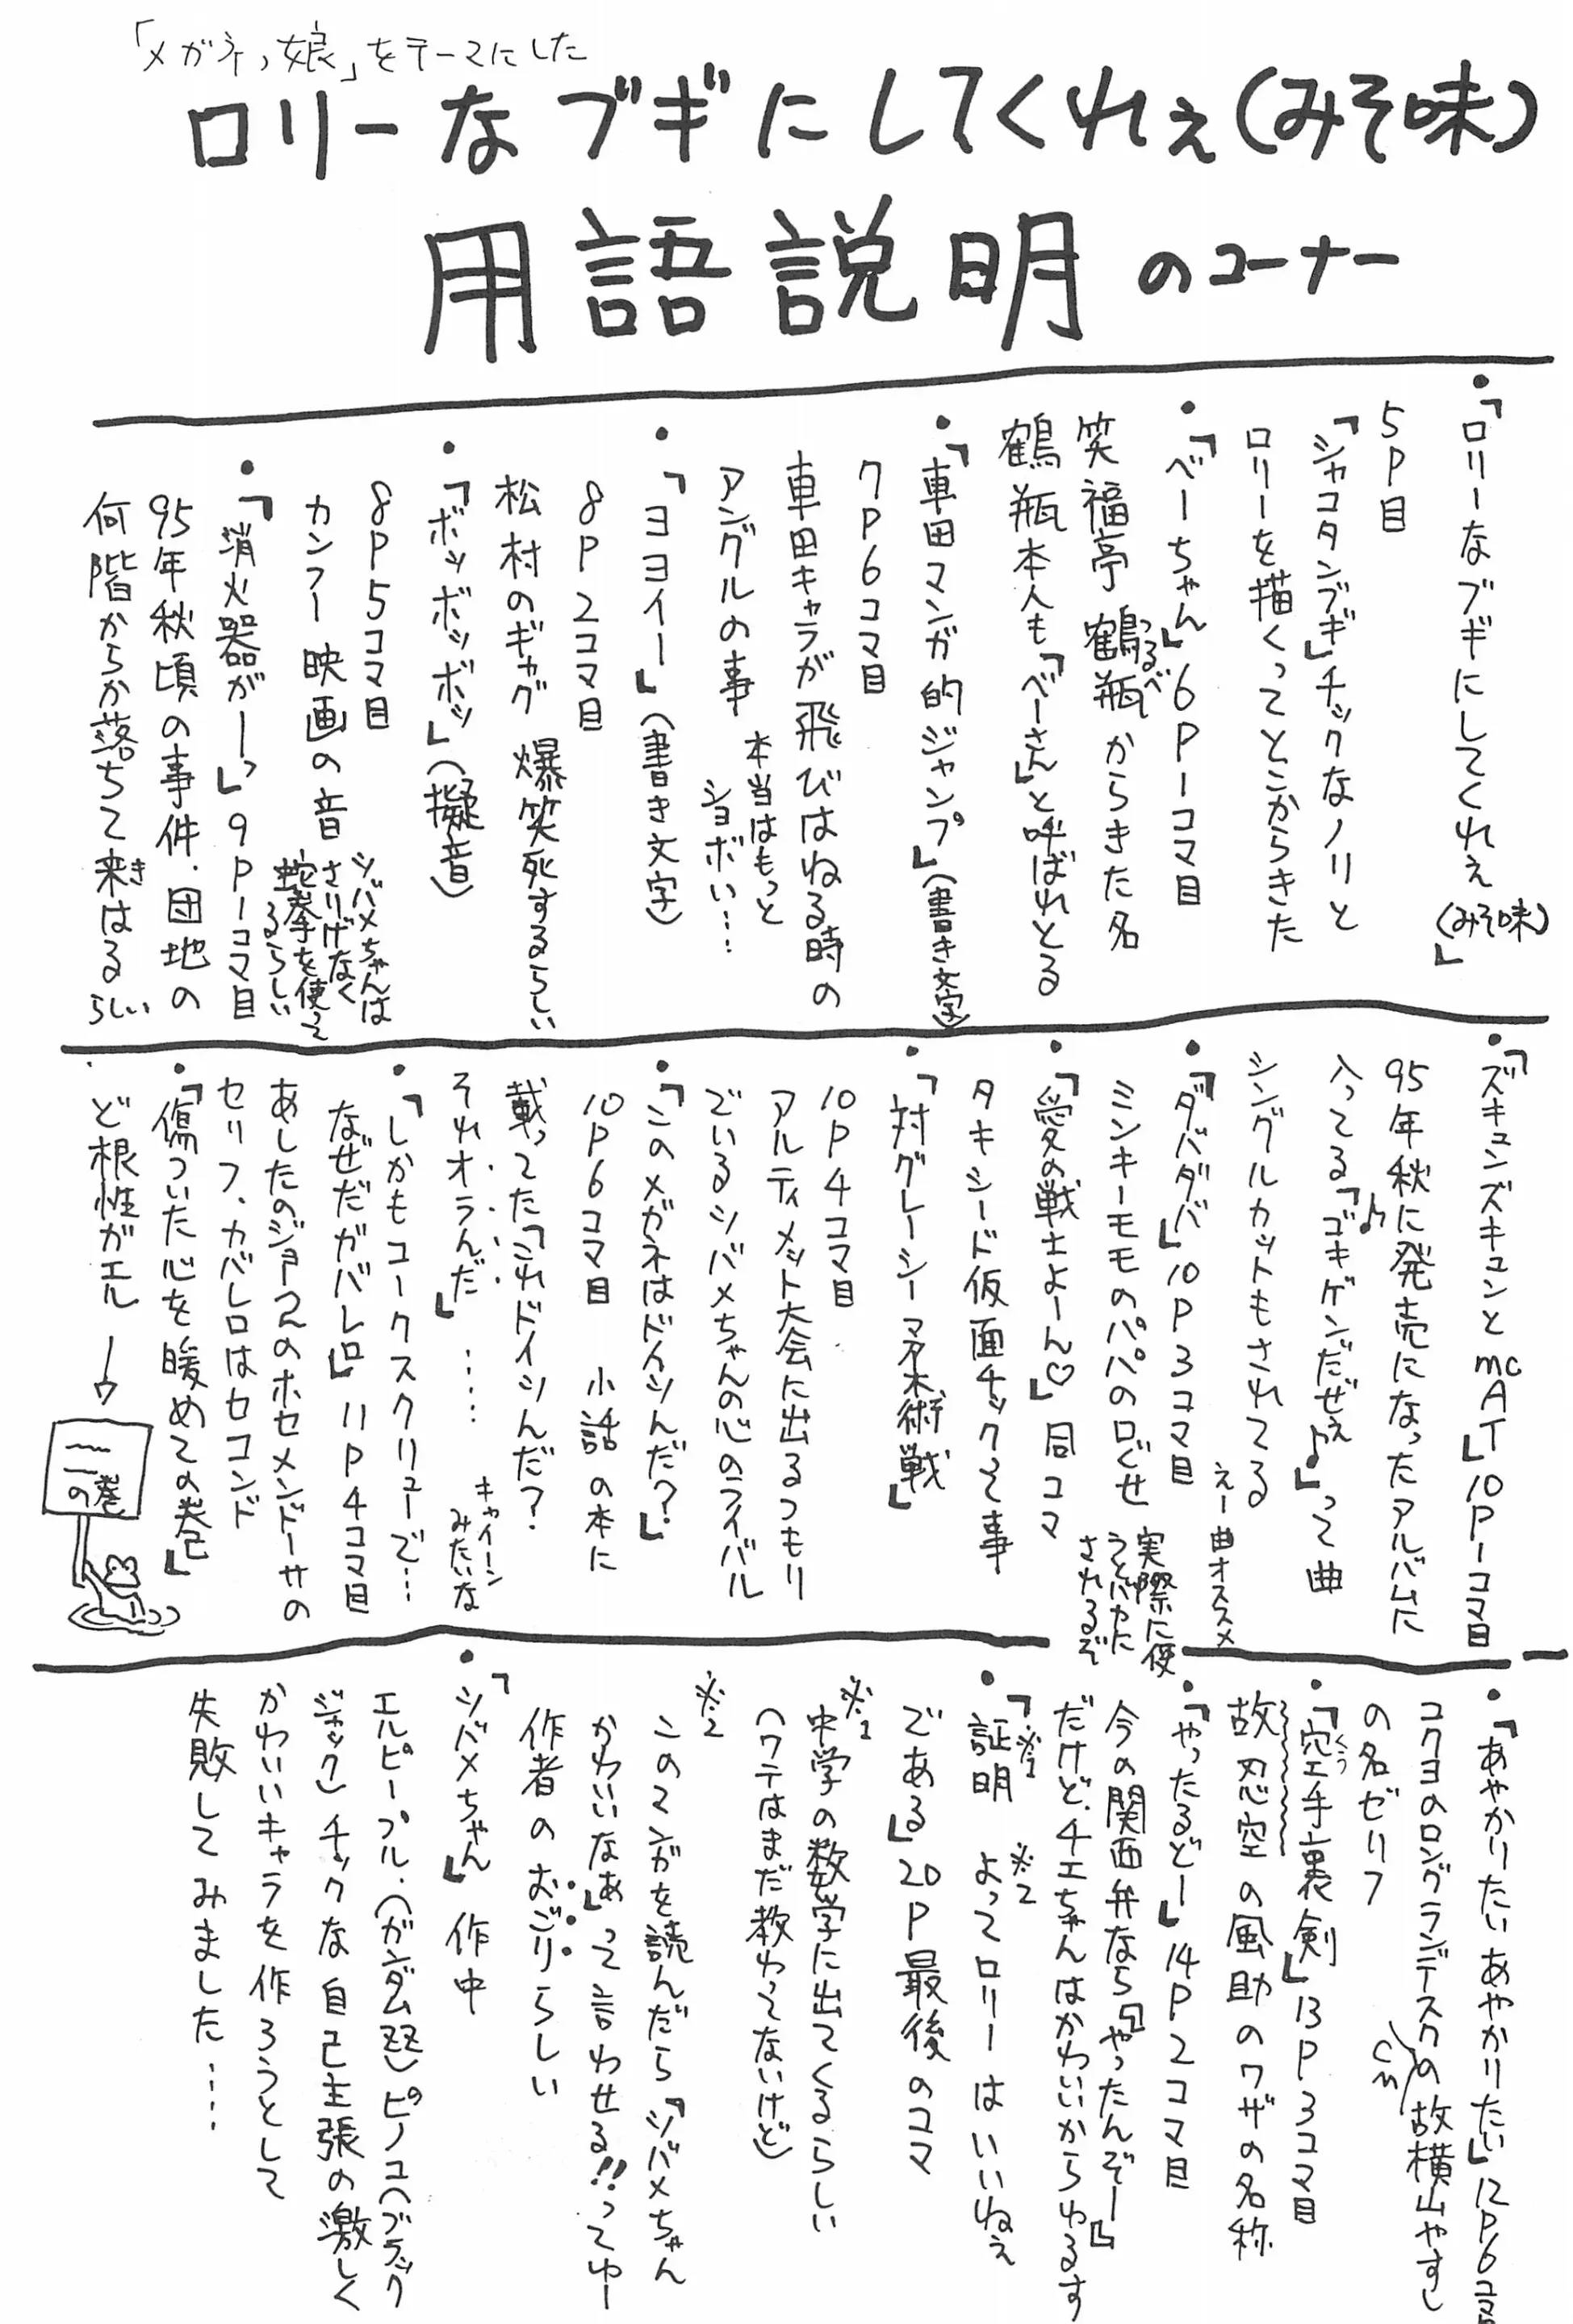 「メガネっ娘」をテーマにした
ロリーなブギにしてくれぇ(みそ味)
用語説明のコーナー
・「ロリーなブギにしてくれぇ(みそ味)」
5P目
「シャコタンブギ」チックなノリと
ロリーを描くってとこからきた
・「べーちゃん」6P1コマ目
笑福亭鶴瓶からきた名
つるべ
鶴瓶本人も「べーさん」と呼ばれとる
・「車田マンガ的ジャンプ」(書き文字)
7P6コマ目
車田キャラが飛びはねる時の
アングルの事
本当はもっと
ショボい…
・「ヨヨイー」(書き文字)
8P2コマ目
松村のギャグ 爆笑死するらしい
・「ボッボッボッ」(擬音)
8P5コマ目
カンフー映画の音
シバメちゃんは
さりげなく
蛇拳を使って
るらしい
・「消火器がーっ」9P1コマ目
95年秋頃の事件.団地の
何階からか落ちて来はるらしい
き
・「ズキュンズキュンとmcAT」10P1コマ目
95年秋に発売になったアルバムに
入ってる「♪ゴキゲンだぜぇ♪」って曲
シングルカットもされてる
えー曲オススメ
・「ダバダバ」10P3コマ目
ミンキーモモのパパの口ぐせ
実際に使
うとバカに
されるぞ
・「愛の戦士よーん♡」同コマ
タキシード仮面チックて事
・「対グレーシー柔術戦」
10P4コマ目
アルティメット大会に出るつもり
でいるシバメちゃんの心のライバル
・「このメガネはドイツんだ?」
10P6コマ目 小話の本に
載ってた「これドイツんだ?
それオランだ」……
キャイーン
みたいな
・「しかもコークスクリューで…
なぜだガバレロ」11P4コマ目
あしたのジョー2のホセメンドーサの
セリフ.カバレロはセコンド
・「傷ついた心を暖めての巻」
ど根性ガエル→
の巻
・「あやかりたいあやかりたい」12P6コマ
コクヨのロングランデスクの故横山やすし
CM
の名ゼリフ
・「空手裏剣」13P3コマ目
くう
故忍空の風助のワザの名称
・「やったるどー」14P2コマ目
今の関西弁なら「やったんぞー」
だけど.チエちゃんはかわいいからゆるす
・「※1証明 ※2よってロリーはいいねぇ
である」20P最後のコマ
※1
中学の数学に出てくるらしい
(ワテはまだ教わってないけど)
※2
このマンガを読んだら「シバメちゃん
かわいいなぁ」って言わせる!!ってゆー
作者のおごりらしい
・「シバメちゃん」作中
エルピープル.(ガンダムZZ)ピノコ(ブラック
ジャック)チックな自己主張の激しく
かわいいキャラを作ろうとして
失敗してみました……